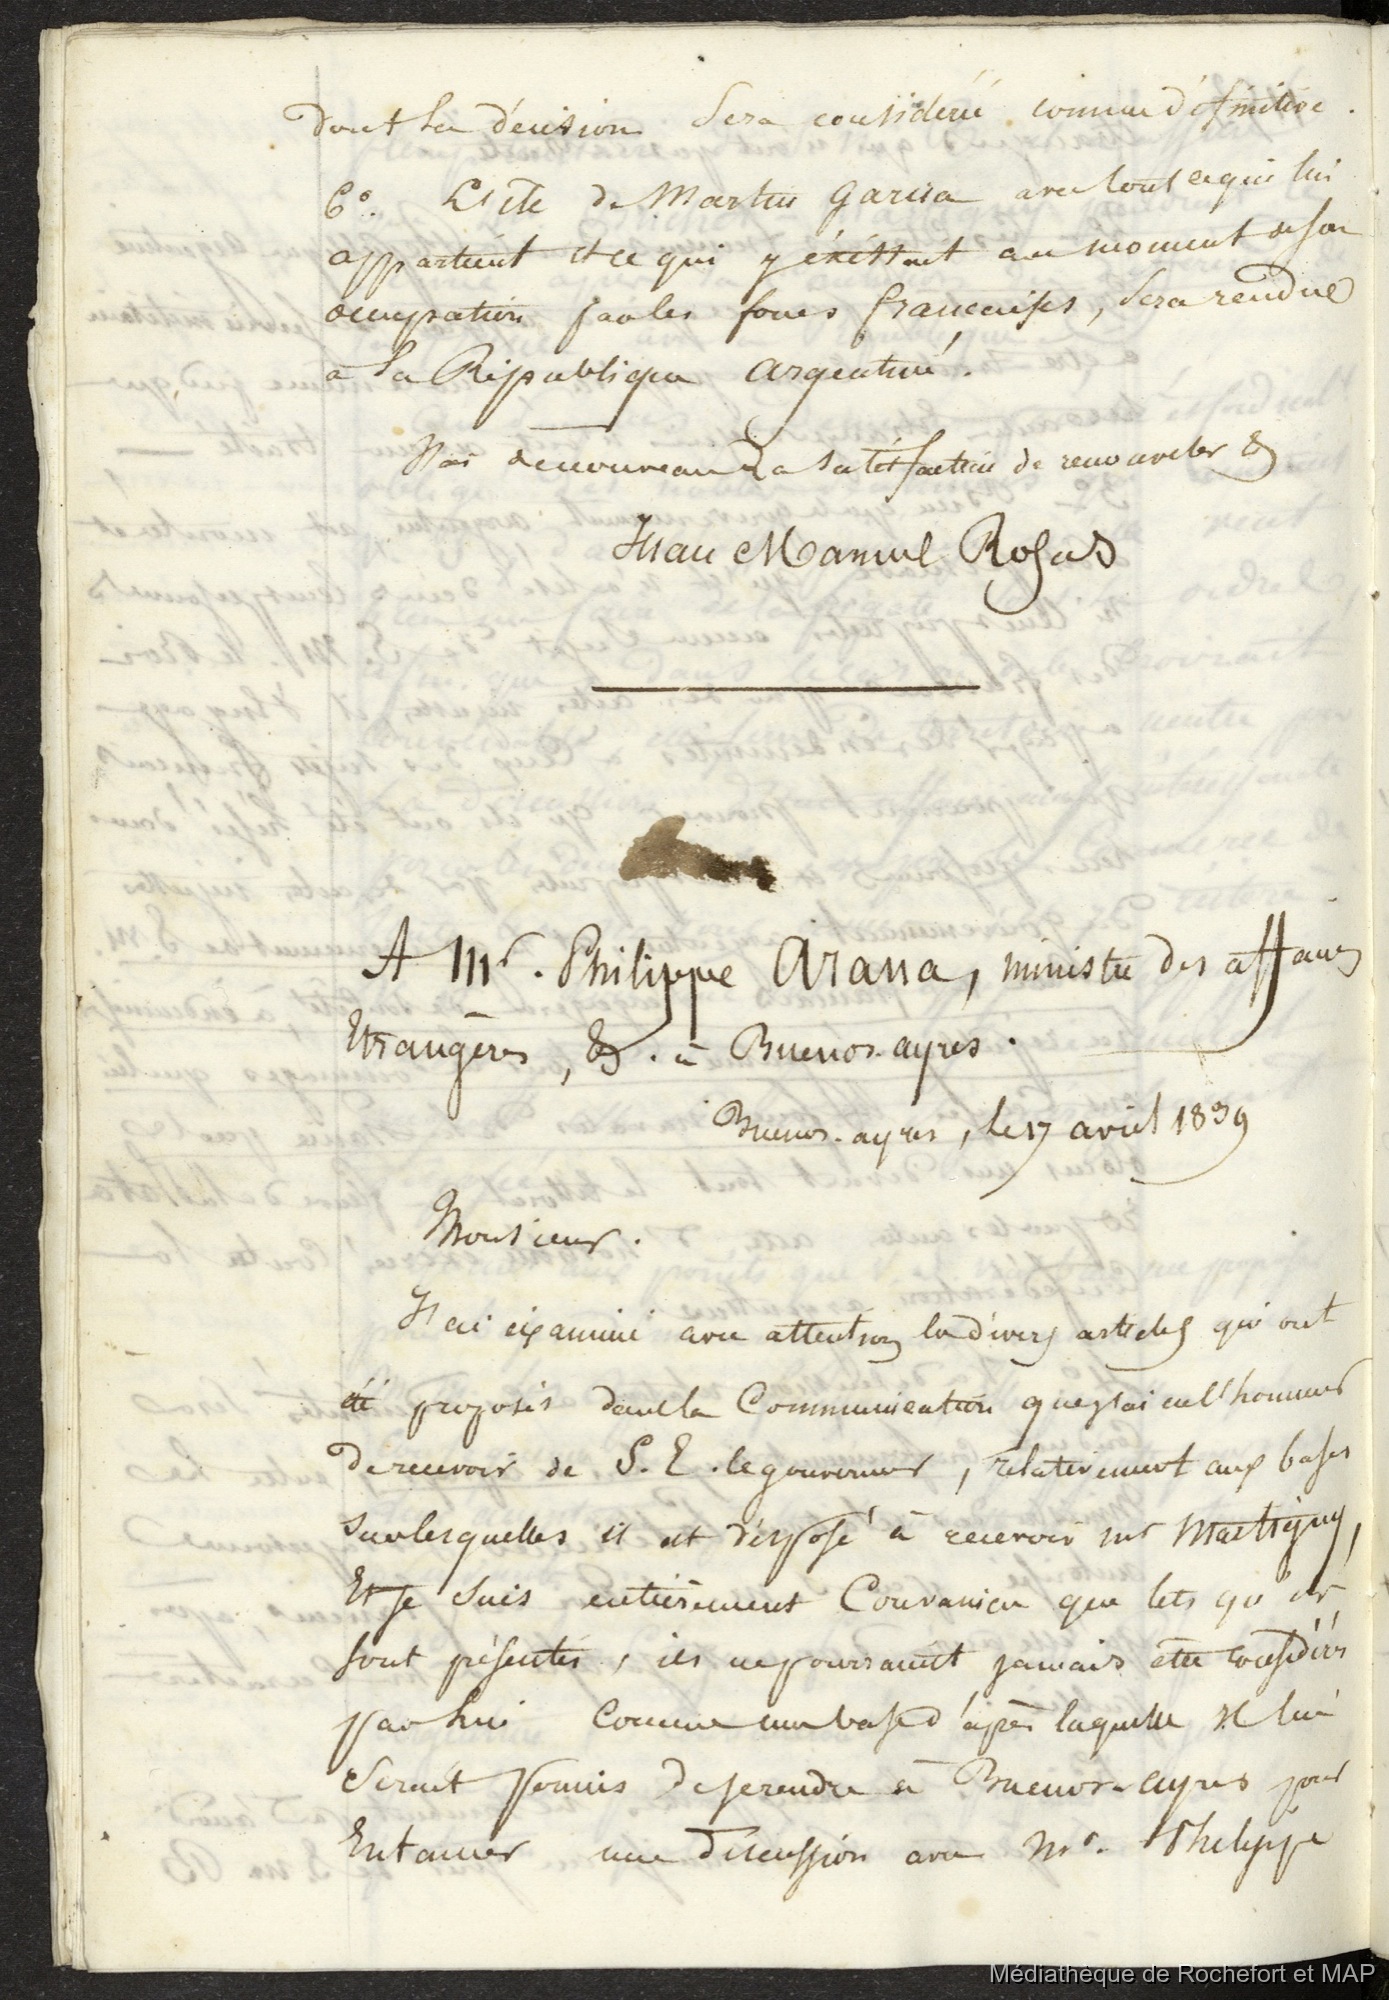 dont la décision sera considéré comme définitive.
6°. L'ile de Martin Garcia avec tout ce qui lui
appartient et ce qui y éxistait au moment de son
occupation par les forces françaises, sera rendue
a la République argentine.
J'ai de nouveau la satisfaction de renouveler &
Juan Manuel Rosas
A Mr. Philippe Arana, ministre des affaires
Etrangères, &. à Buenos-ayres.
Buenos-ayres, le 17 avril 1839
Monsieur.
J'ai éxaminé avec attention les divers articles qui ont
été proposés dans la Communication que j'ai eu l'honneur
de recevoir de S. E. le gouverneur, relativement aux bases
sur lesquelles il est disposé à recevoir mr Martigny,
Et je suis entièrement Convaincu que tels qu'ils
sont présentés, ils ne pourraient jamais être considérés
par lui comme une base d'après laquelle il lui
serait permis de se rendre à Buenos-ayres pour
Entamer une discussion avec Mr. Philippe
Médiathèque de Rochefort et MAP